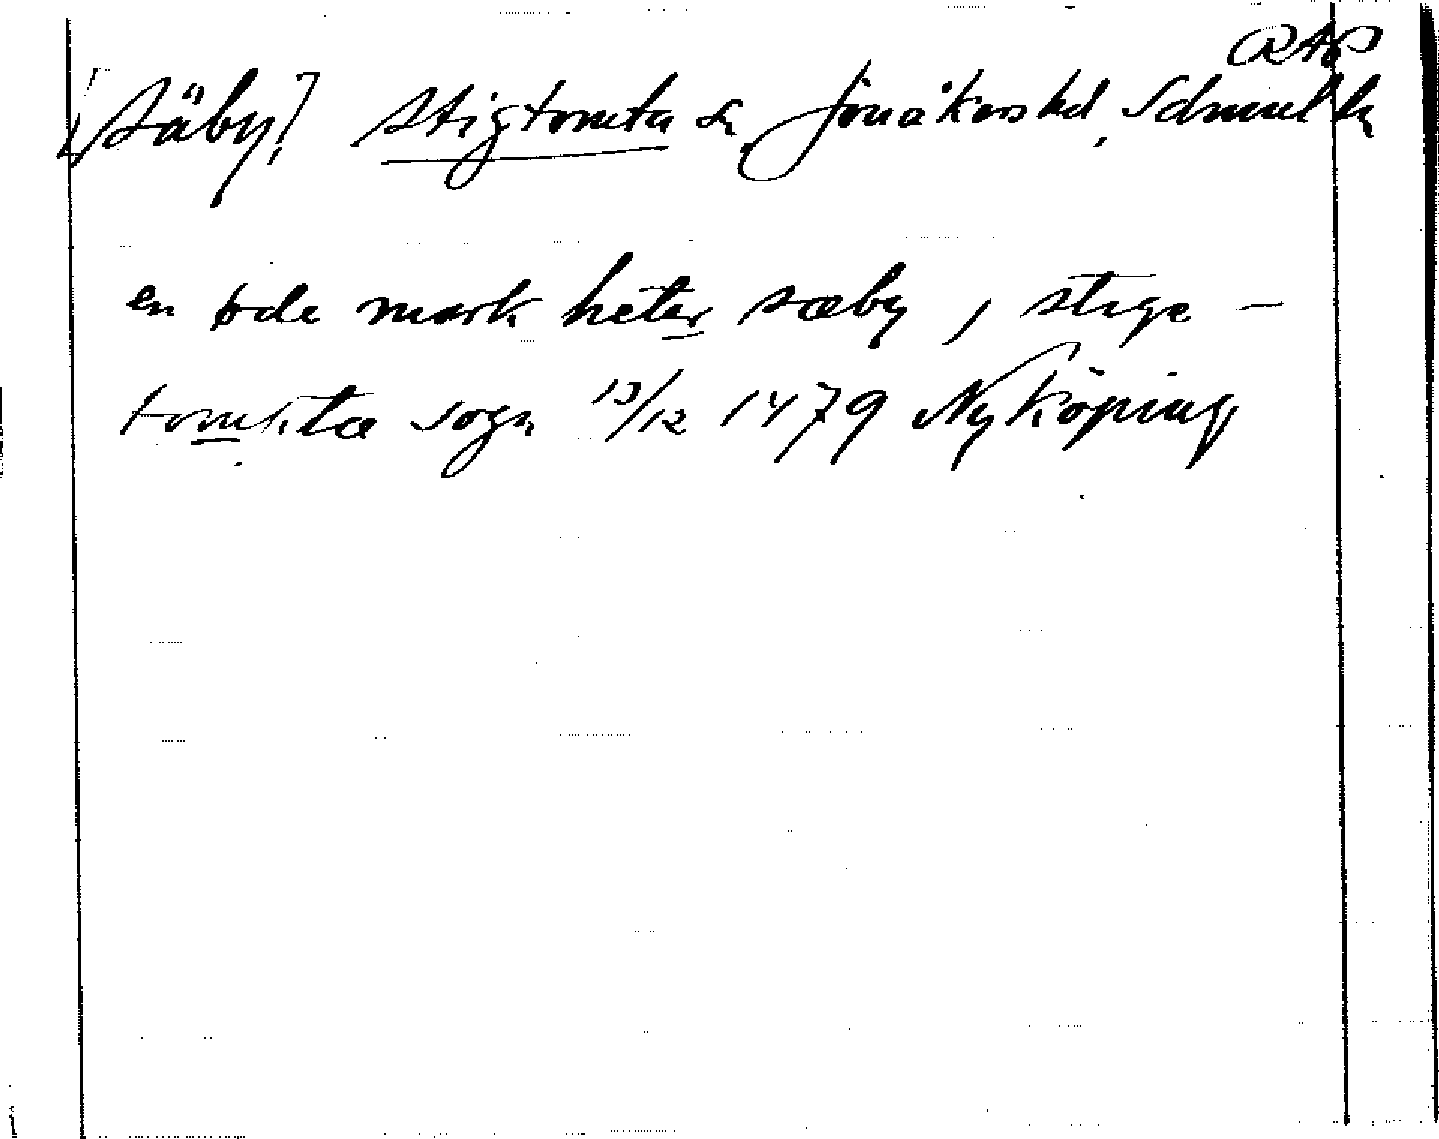 RAP
[Säby,] Stigtomta sn, Jönåkers hd, Sdmnl ln
en øde mark heter sæby j stige-
tomptæ sogn 13/12 1479 Nyköping